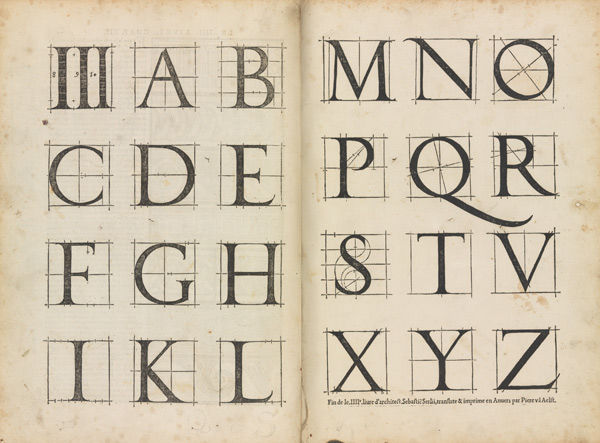 III A B
C D E
F G H
I K L
M N O
P Q R
S T V
X Y Z
Fin de le. IIIIe. liure d'architect. Sebastiē Serlii, translate & imprime en Anuers par Piere vā Aelst.